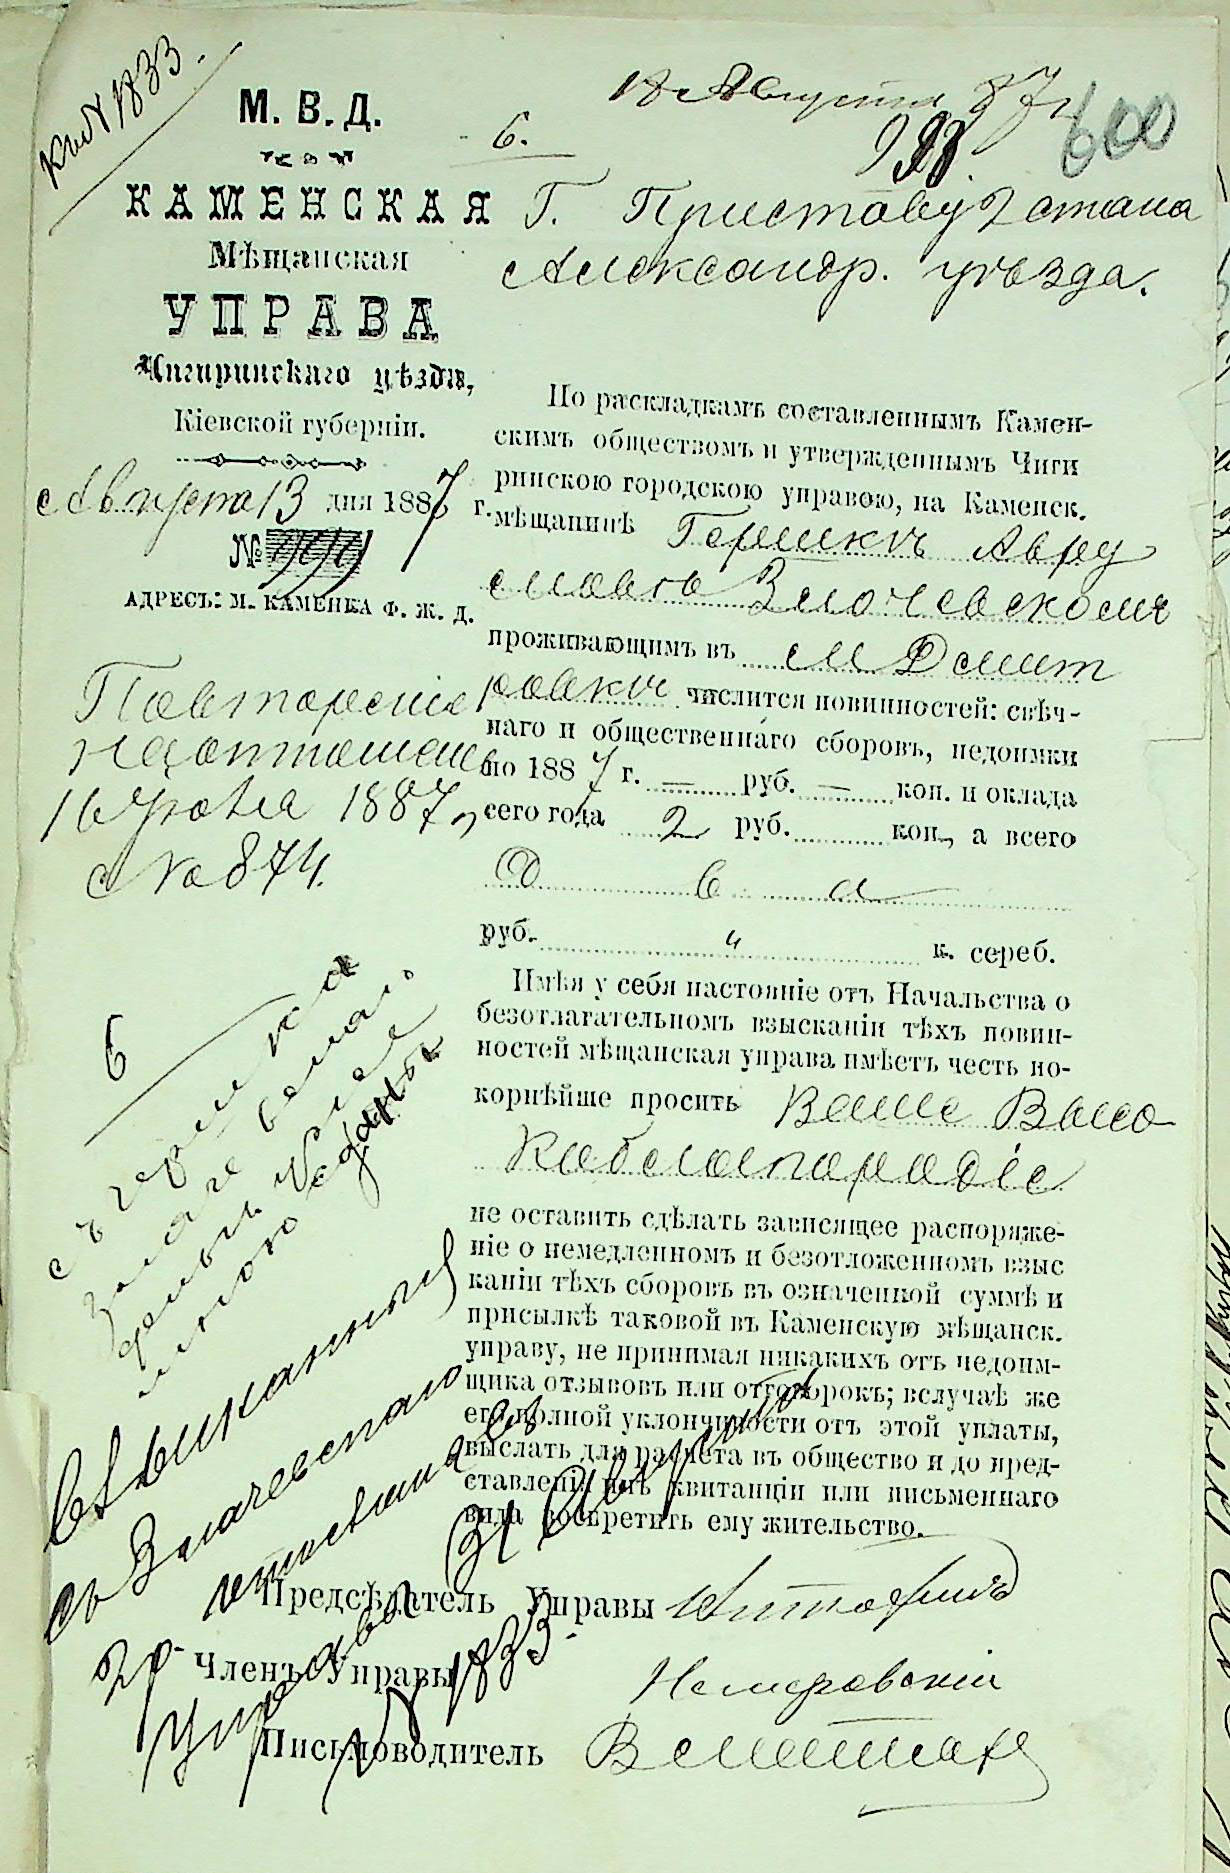 К № 1833.
18 Августа 87 г.
6.
998.
600
М. В. Д.
КАМЕНСКАЯ
Мѣщанская
УПРАВА
Чигиринскаго уѣзда,
Кіевской губерніи.
Августа 13 дня 1887 г.
№ 999
АДРЕСЪ: М. КАМЕНКА Ф. Ж. Д.
Г. Приставу 2 стана
Александр. уѣзда.
По раскладкамъ составленнымъ Камен-
скимъ обществомъ и утвержденнымъ Чиги
ринскою городскою управою, на Каменск.
мѣщанинѣ Гершкѣ Авру
мовѣ Злочевскомъ
проживающимъ въ м Дмит
ровки числится повинностей: свѣч-
наго и общественнаго сборовъ, недоимки
по 1887 г. — руб. — коп. и оклада
сего года 2 руб. коп., а всего
Два
руб. " к. сереб.
Имѣя у себя настояніе отъ Начальства о
безотлагательномъ взысканіи тѣхъ повин-
ностей мѣщанская управа имѣетъ честь по-
корнѣйше просить Ваше Высо
коблагородіе
не оставить сдѣлать зависящее распоряже-
ніе о немедленномъ и безотложенномъ взыс
каніи тѣхъ сборовъ въ означенной суммѣ и
присылкѣ таковой въ Каменскую мѣщанск.
управу, не принимая никакихъ отъ недоим-
щика отзывовъ или отговорокъ; вслучаѣ же
его полной уклончивости отъ этой уплаты,
выслать для расчета въ общество и до пред-
ставленія имъ квитанціи или письменнаго
вида воспретить ему жительство.
Повтореніе
на отношеніе
16 Июня 1887 г
№ 874.
6
Взысканные
съ Злачевскаго
2 р. въ
Управу 31 Августа
№ 1833.
Предсѣдатель Управы
Членъ Управы Немировскій
Письмоводитель